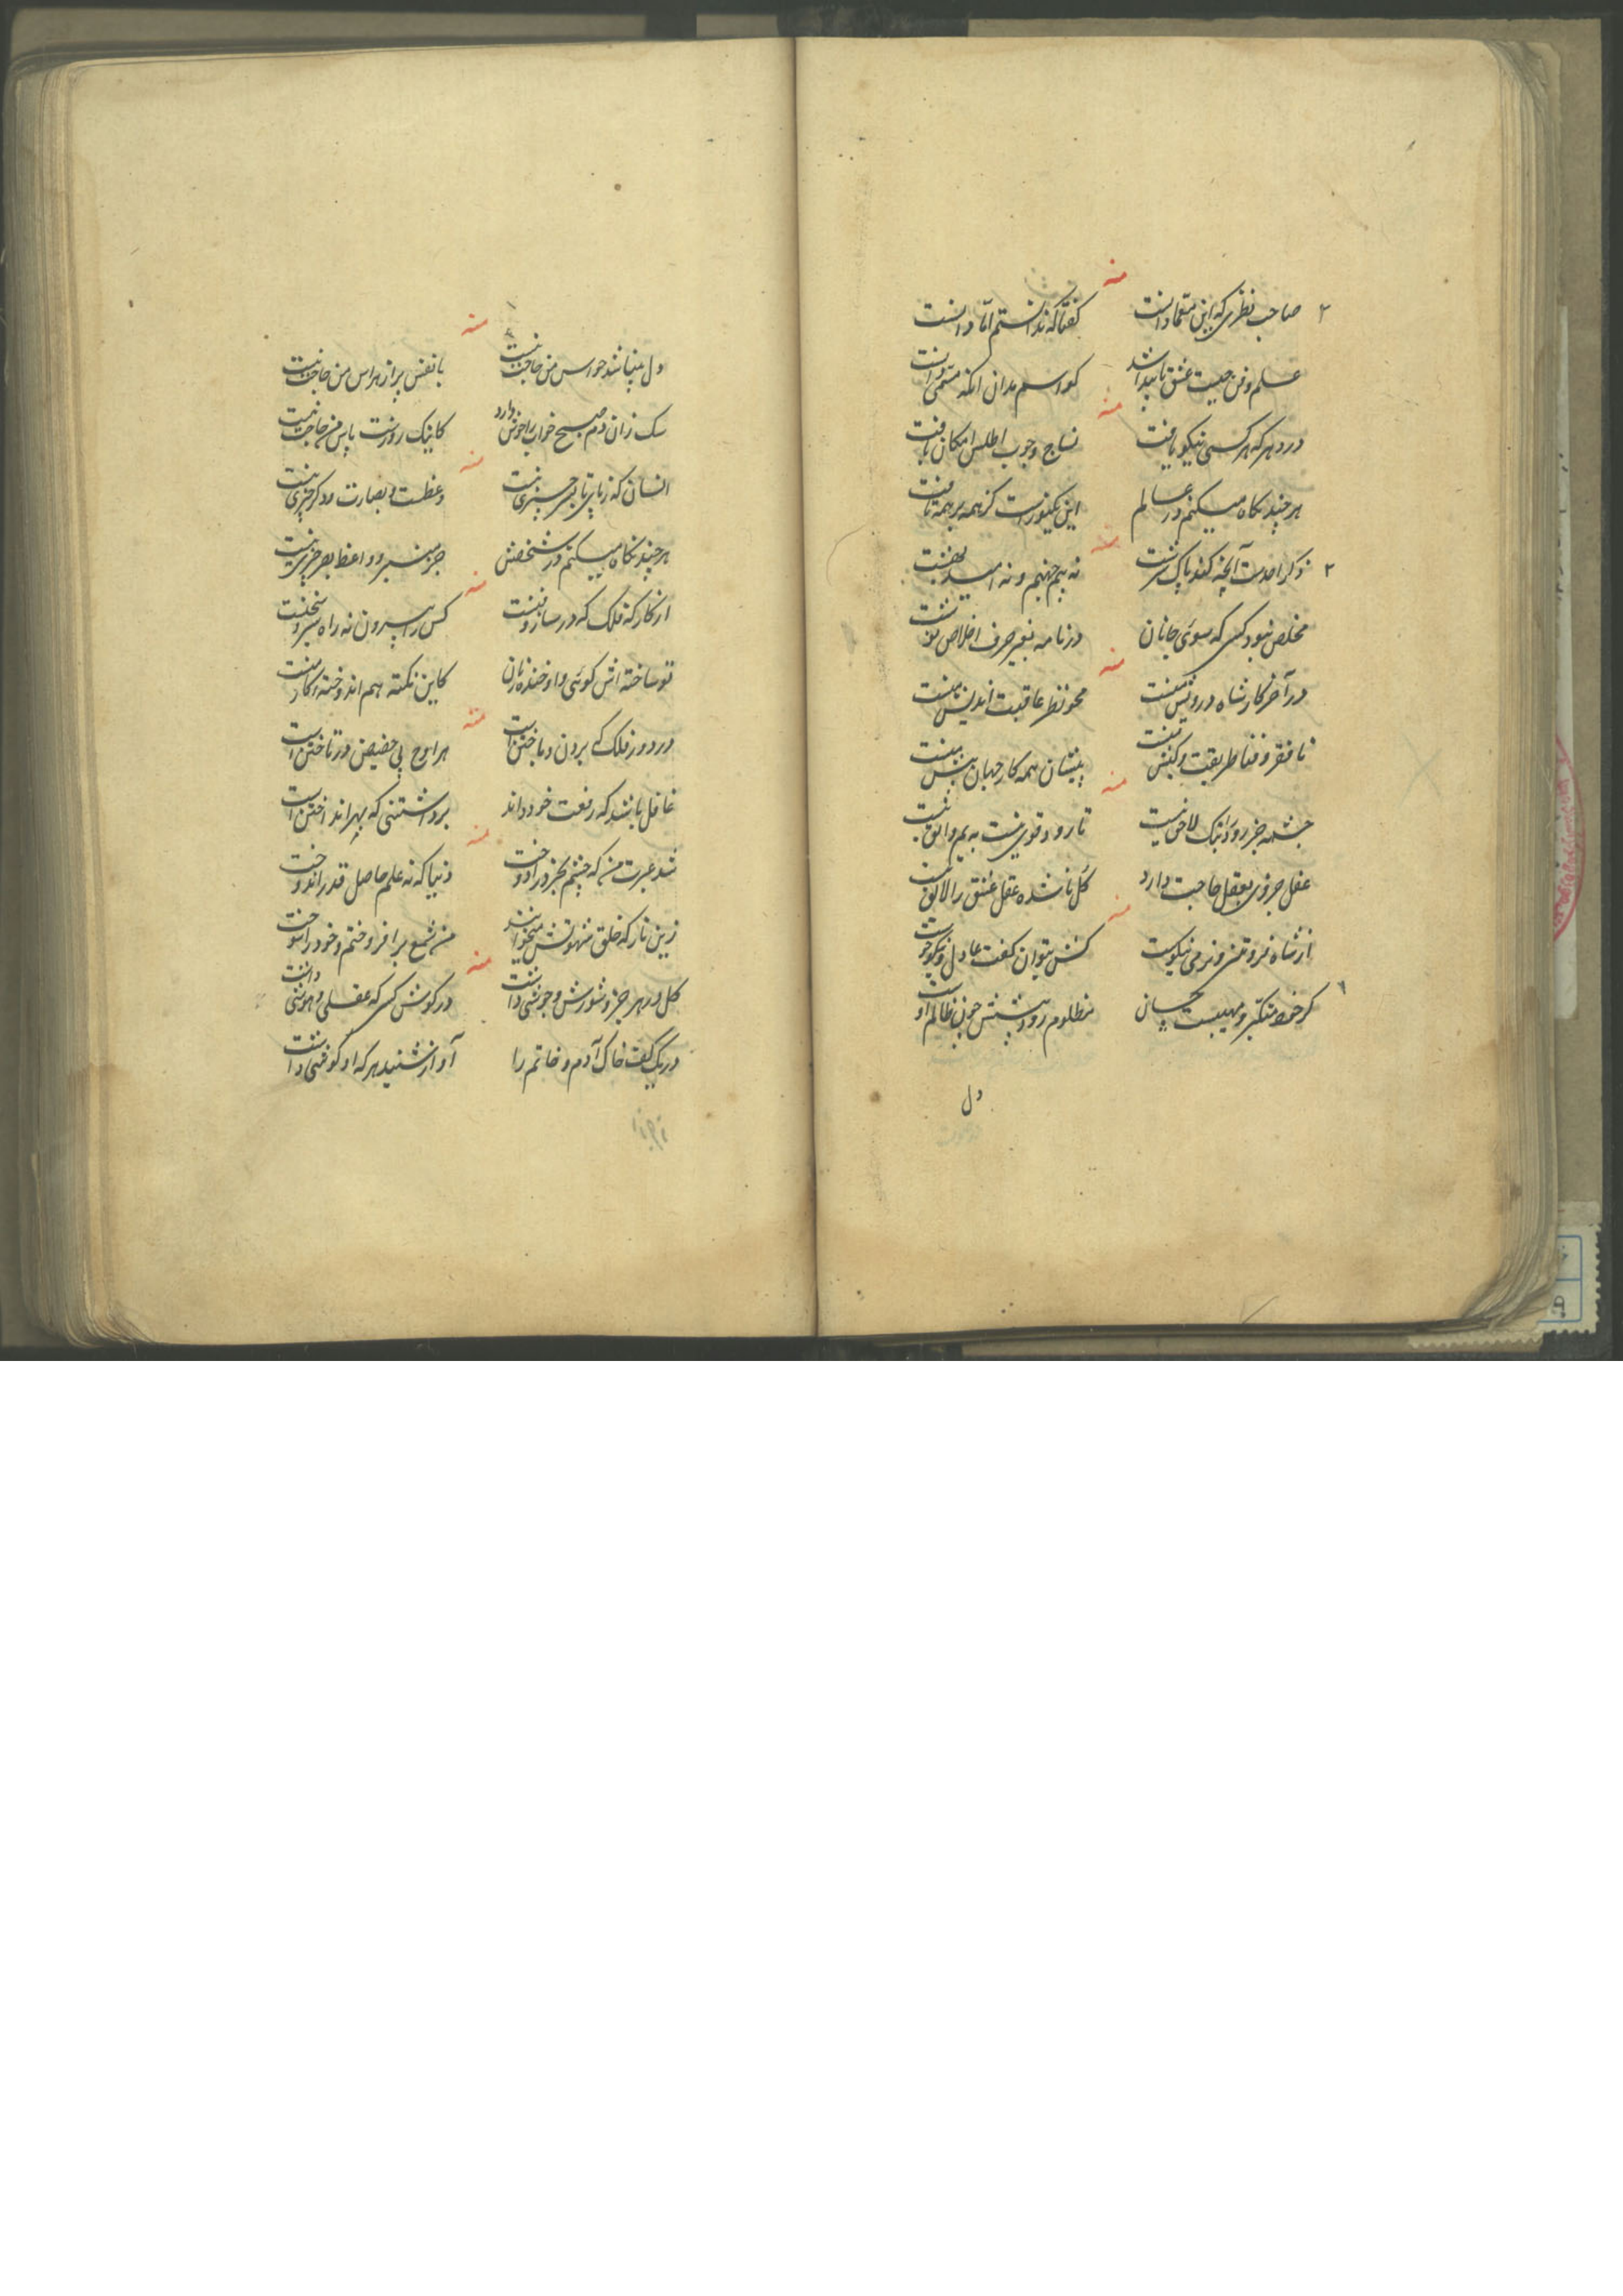 منه
۲ صاحب نظری که این معما دانست گفتا که ندانستم اما دانست
علم و فن چیست عشق ناپیدا شد کو اسم بدان آنکه مسمی دانست
منه
در دهر که هر کسی نیکو بافت نساج وجوب اطلس امکان بافت
هر چند نگاه میکنم در عالم این یکنور است کز همه بر همه تافت
منه
۲ ذکر احد است آنچه کند پاک سرشت نه بیم جهنم و نه امید بهشت
مخلص نبود کسی که سوی جانان در نامه بغیر حرف اخلاص نوشت
منه
در آخر کار شاه درویش منست محو نظر عاقبت اندیش منست
تا فقر و فنا طریقت و کیش منست پیشان همه کار جهان پیش منست
منه
چشمه جز رود اینک لاحق نیست تا رود قوی نیست به یم واثق نیست
عقل جزوی بعقل حاجت دارد کل تا نشده عقل عشق را لایق نیست
منه
از شاه فروتنی و نرمی نیکوست کش بتوان گفت عادل و نیکوخوست
گر خود متکبر و مهیبست چسان مظلوم رود پیشش چون ظالم اوست
دل
منه
دل میباشد حواس من حاجت نیست با نفس پر از هراس من حاجت نیست
سک زان دم صبح خواب را خوش دارد کاینک روزست پاس من حاجت نیست
منه
انسان که ز پای تا بسر چیزی نیست وعظست و بصارت و دگر چیزی نیست
هر چند نگاه میکنم در شخصش جز منبر و واعظ بصر چیزی نیست
منه
از کار که فلک که در ساز و نیست کس را بیرون نه راه سر و سخنیست
تو ساخته اش گوئی و او خنده زنان کاین نکته هم اندوخته کار منست
منه
در دور فلک که برون و باختن است هر اوج پی حضیض در تاختن است
غافل باشد که رفعت خود داند برداشتنی که بهر انداختن است
منه
شد عبرت من که چشم بخرد را دوخت دنیا که نه علم حاصل قدر اندوخت
زین نار که خلق شهوتش میخوانند من شمع برافروختم و خود را سوخت
منه
کل در هر جزو شورش و جوشی داشت در گوش کسی که عقلی و هوشی داشت
در یک کف خاک آدم و خاتم را آواز شنید هر که او گوشی داشت